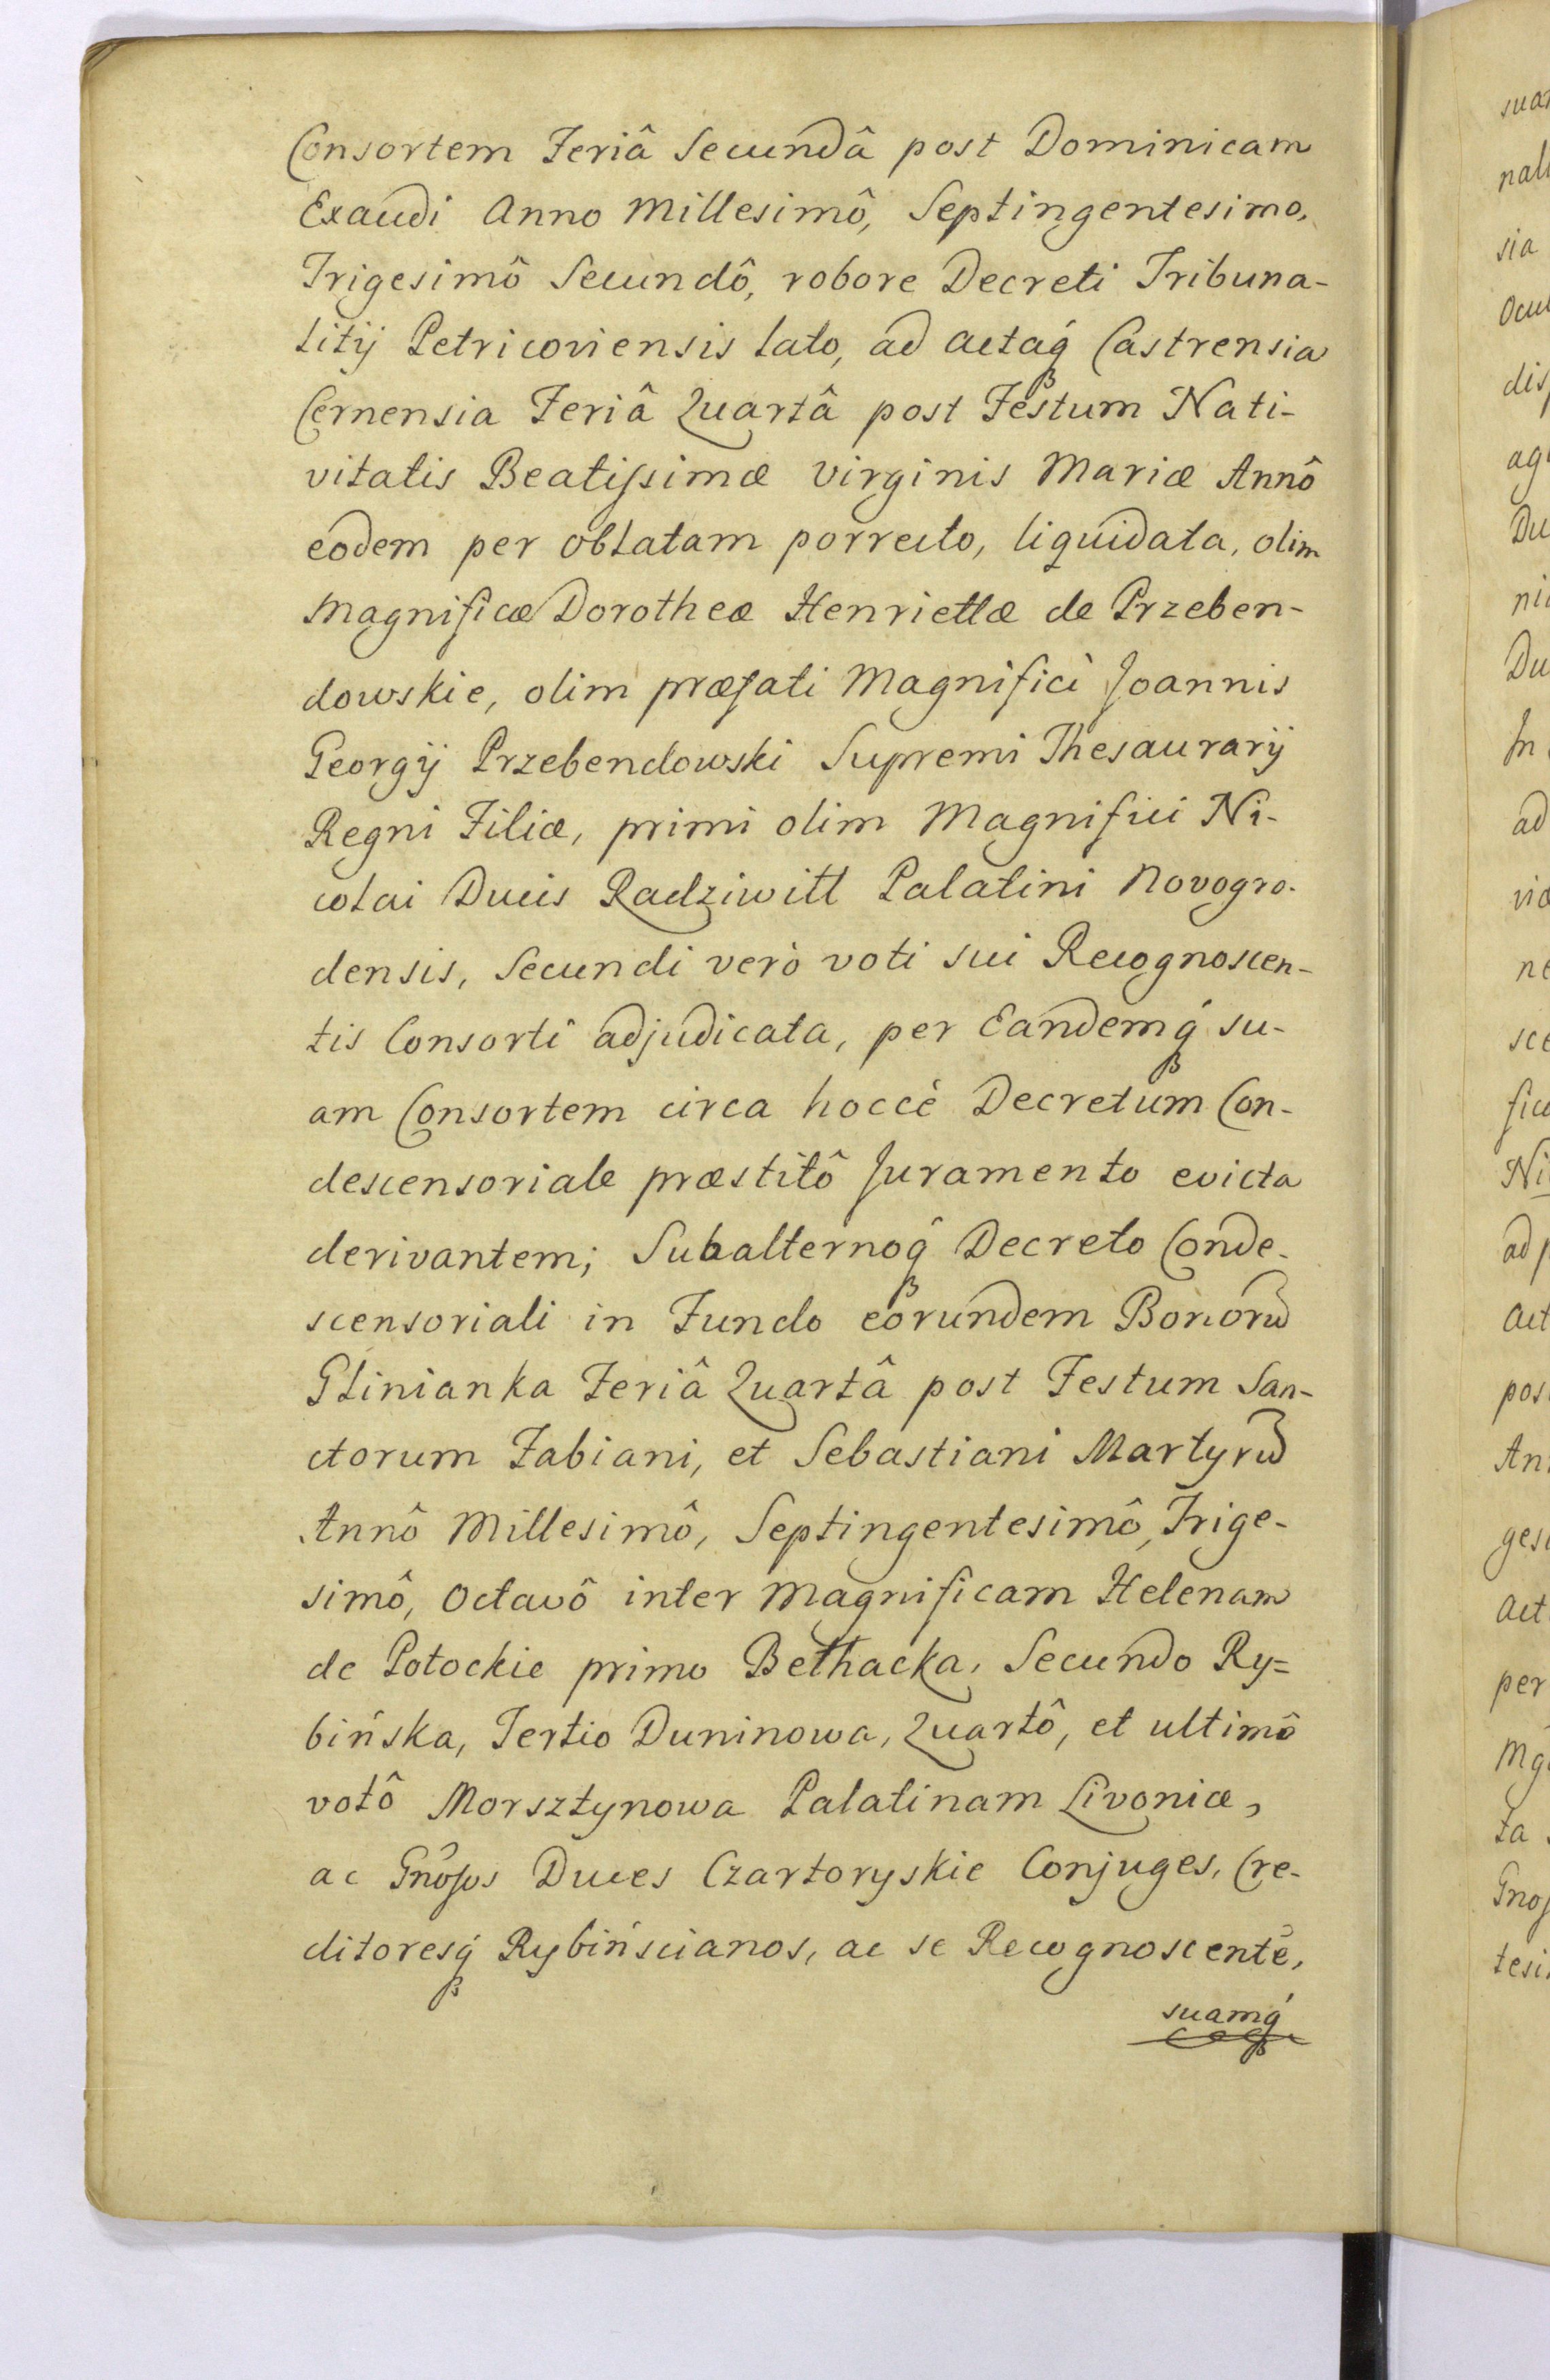 Consortem Feriâ Secundâ post Dominicam
Exaudi Anno Millesimô, Septingentesimo,
Trigesimô Secundô, robore Decreti Tribuna-
litij Petricoviensis lato, ad actaq́ Castrensia
Cernensia Feriâ Quartâ post Festum Nati-
vitatis Beatissimæ Virginis Mariæ Annô
eodem per oblatam porrecto, liquidata, olim
Magnificæ Dorotheæ Henriettæ de Przeben-
dowskie, olim præfati Magnifici Joannis
Georgij Przebendowski Supremi Thesaurarij
Regni Filiæ, primi olim Magnifici Ni-
colai Ducis Radziwill Palatini Novogro-
densis, Secundi verò voti sui Recognoscen-
tis Consorti adjudicata, per Eandemq́ su-
am Consortem circa hoccè Decretum Con-
descensoriale præstitô Juramento evicta
derivantem; Subalternoq́ Decreto Conde-
scensoriali in Fundo eorundem Bonorũ
Glinianka Feriâ Quartâ post Festum San-
ctorum Fabiani, et Sebastiani Martyrũ
Annô Millesimô, Septingentesimô, Trige-
simô, Octavô inter Magnificam Helenam
de Potockie primo Bełhacka, Secundo Ry=
bińska, Tertio Duninowa, Quartô, et ultimô
votô Morsztynowa Palatinam Livoniæ,
ac Gnosos Duces Czartoryskie Conjuges, Cre-
ditoresq́ Rybińscianos, ac se Recognoscentẽ,
suamq́